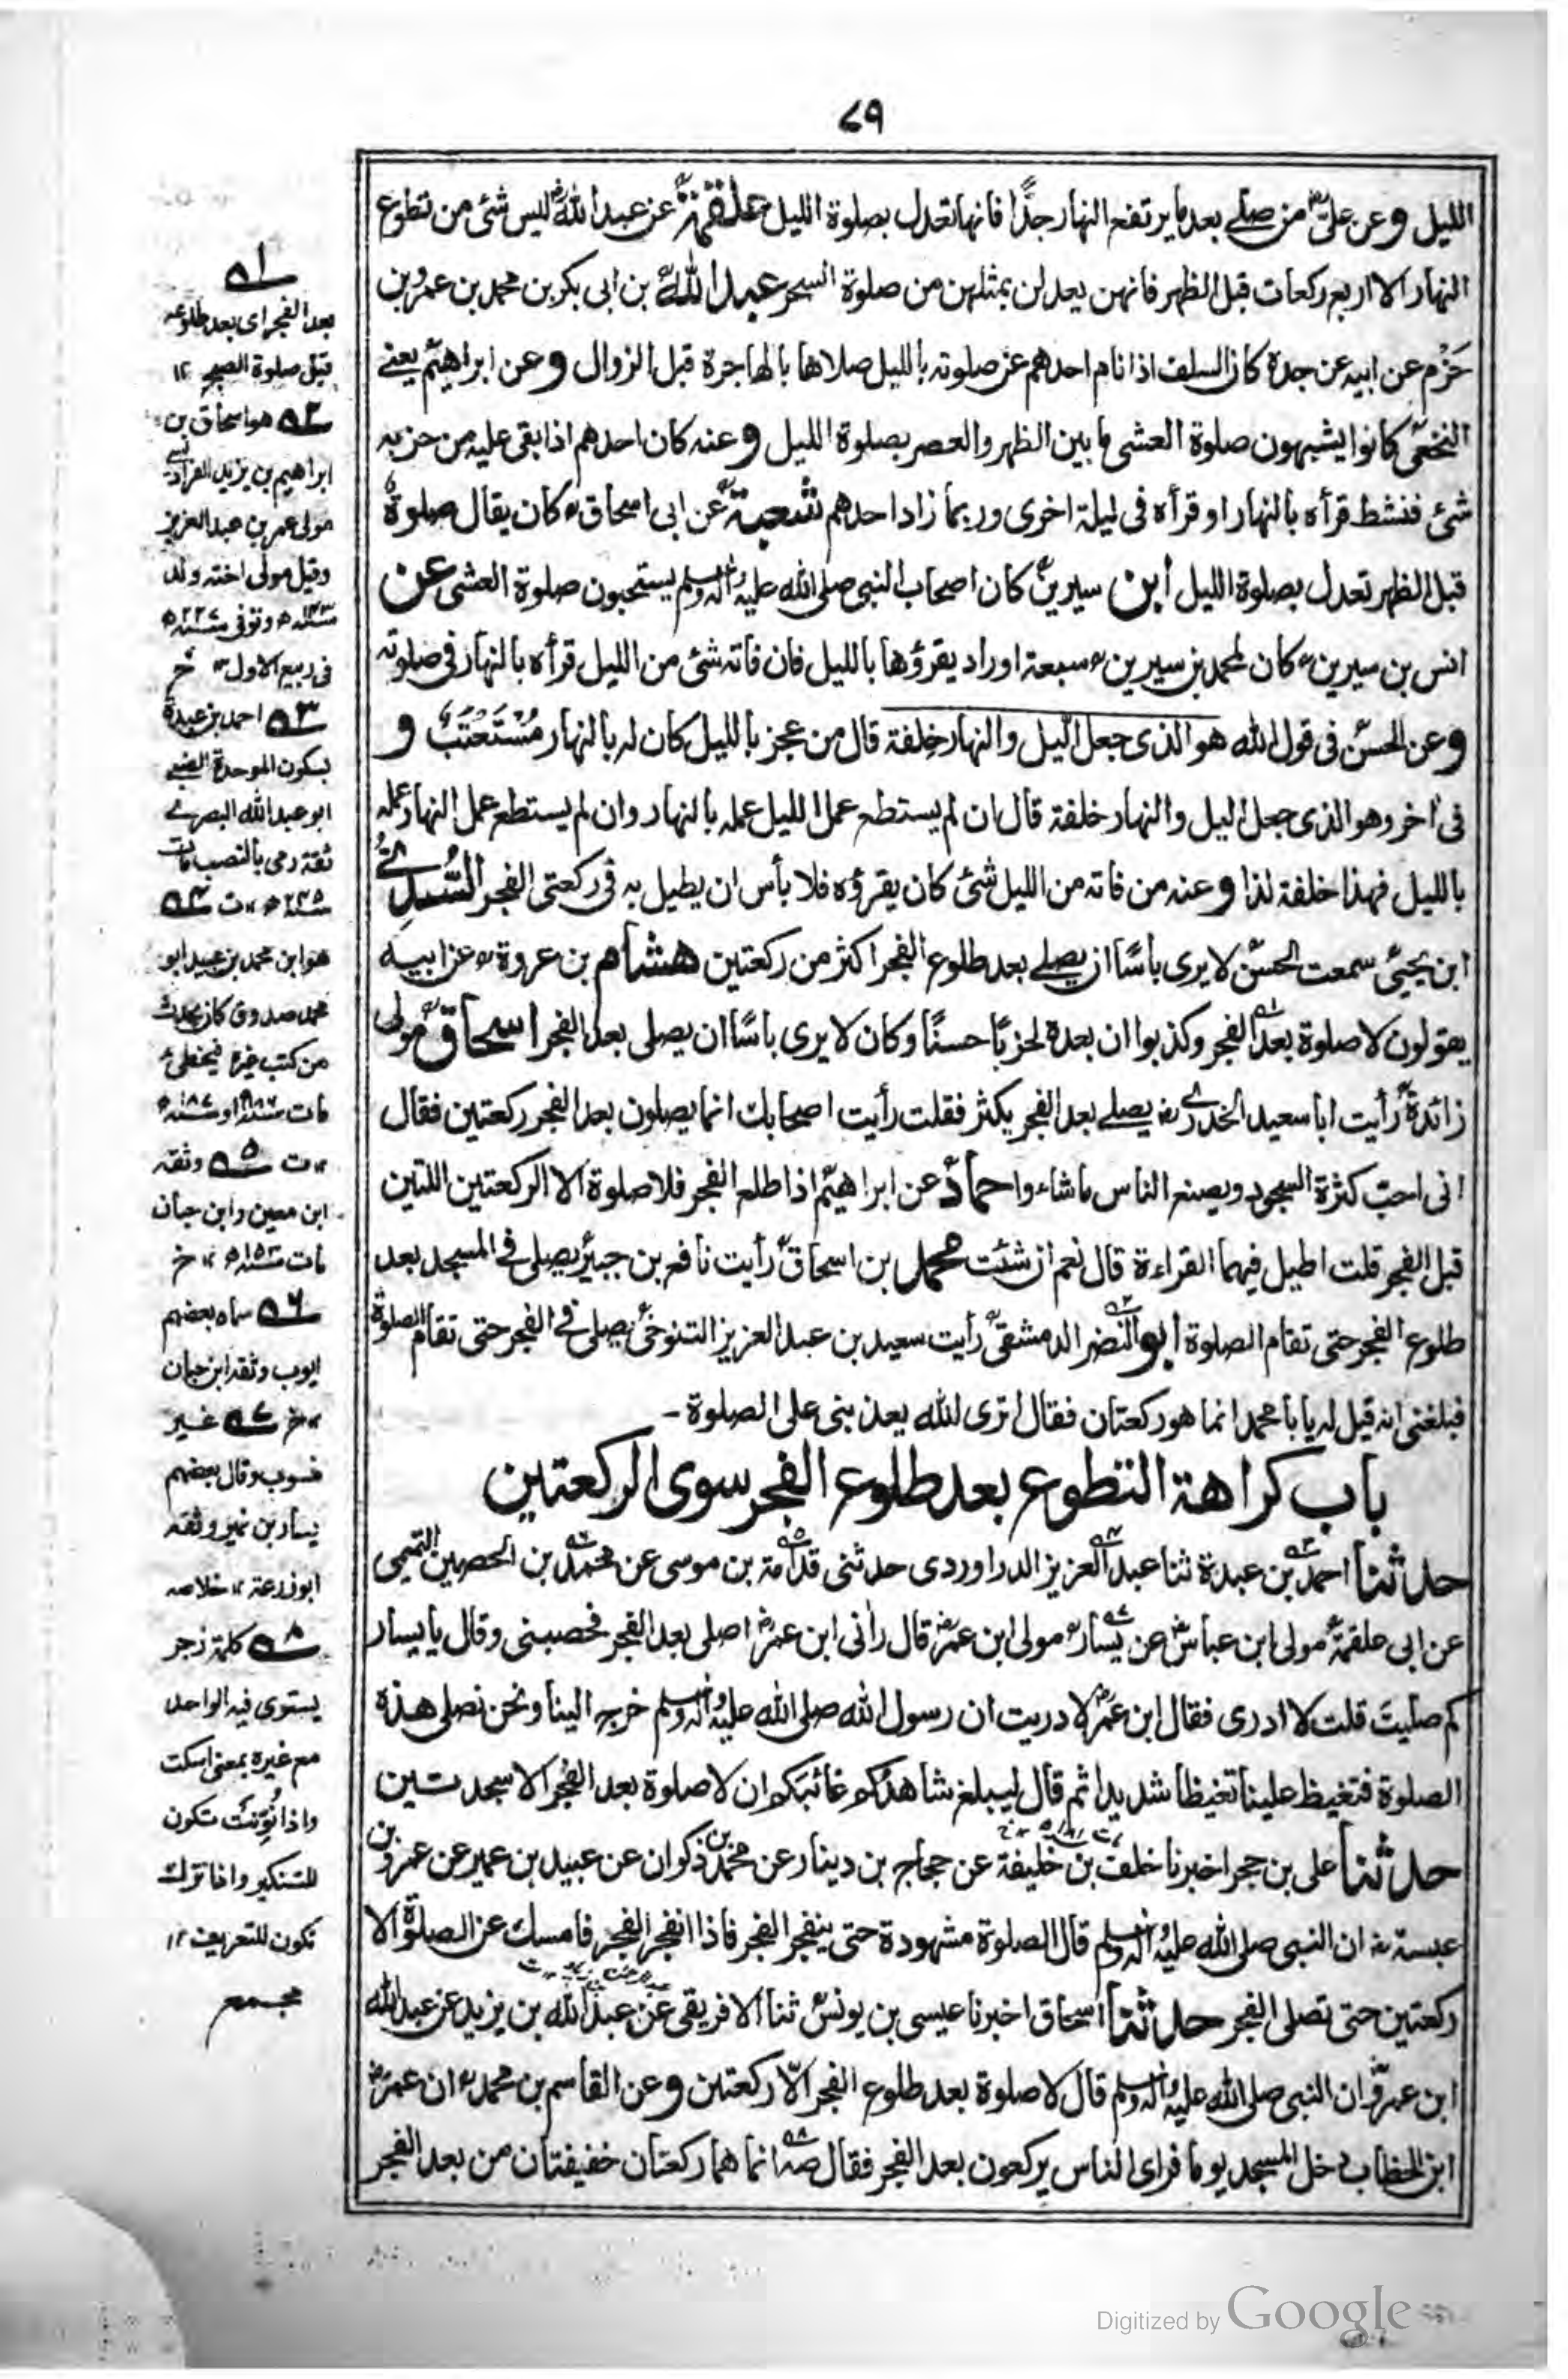 ٧٩
الليل وعن علیؓ من صلے بعد ما يرتفع النهار جدًّا فانها تعدل بصلوة الليل علقمةؒ عن عبد اللهؓ ليس شئ من تطوع
النهار الا اربع ركعات قبل الظهر فانهن يعدلن بمثلهن من صلوة السحر عبد اللهؒ بن ابى بكر بن محمد بن عمرو بن
حَزْم عن ابيه عن جده كان السلف اذا نام احدهم عن صلوته بالليل صلاها بالهاجرة قبل الزوال وعن ابراهيمؒ يعنے
النخعیؒ كانوا يشبهون صلوة العشى ما بين الظهر والعصر بصلوة الليل وعنه كان احدهم اذا بقى عليه من حزبه
شئ فنشط قرأه بالنهار او قرأه فى ليلة اخرى وربما زاد احدهم شعبةؒ عن ابى اسحاقؒ كان يقال صلوةٌ
قبل الظهر تعدل بصلوة الليل ابن سيرينؒ كان اصحاب النبى صلى الله عليه وآله وسلم يستحبون صلوة العشى عن
انس بن سيرينؒ كان لمحمد بن سيرينؒ سبعة اوراد يقرؤها بالليل فان فاته شئ من الليل قرأه بالنهار فى صلوته
وعن الحسنؒ فى قول الله هو الذى جعل اليل والنهار خِلفة قال من عجز بالليل كان له بالنهار مُسْتَعْتَبٌ و
فى اٰخر وهو الذى جعل اليل والنهار خلفة قال ان لم يستطع عمل الليل عمله بالنهار وان لم يستطع عمل النهار عمله
بالليل فهذا خلفة لذا وعنه من فاته من الليل شئ كان يقرؤه فلا بأس ان يطيل به فى ركعتى الفجر السُّدِّىّ
ابن يحيىؒ سمعت الحسنؒ لا يرى باسًا ان يصلے بعد طلوع الفجر اكثر من ركعتين هشام بن عروةؒ عن ابيه
يقولون لا صلوة بعد الفجر وكذبوا ان بعده لحزبًا حسنًا وكان لا يرى باسًا ان يصلى بعد الفجر اسحاقؒ مولى
زائدةؒ رأيت ابا سعيد الخدرےؓ يصلے بعد الفجر يكثر فقلت رأيت اصحابك انما يصلون بعد الفجر ركعتين فقال
انى احبّ كثرة السجود ويصنع الناس ما شاءوا حمادؒ عن ابراهيمؒ اذا طلع الفجر فلا صلوة الا الركعتين اللتين
قبل الفجر قلت اطيل فيهما القراءة قال نعم ان شئت محمد بن اسحاقؒ رأيت نافع بن جبيرؒ يصلى فے المسجد بعد
طلوع الفجر حتى تقام الصلوة ابو النضر الدمشقیؒ رأيت سعيد بن عبد العزيز التنوخىؒ يصلى فے الفجر حتى تقام الصلوة
فبلغنى انه قيل له يا با محمد انما هو ركعتان فقال اترى الله يعذبنى على الصلوة -
باب كراهة التطوع بعد طلوع الفجر سوى الركعتين
حدثنا احمد بن عبدة ثنا عبد العزيز الدراوردى حدثنى قدامة بن موسى عن محمد بن الحصين التميمى
عن ابى علقمةؒ مولى ابن عباسؓ عن يسارؒ مولى ابن عمرؓ قال رانى ابن عمرؓ اصلى بعد الفجر فحصبنى وقال يا يسار
كم صليتَ قلت لا ادرى فقال ابن عمرؓ لا دريت ان رسول الله صلى الله عليه وآله وسلم خرج الينا ونحن نصلى هذه
الصلوة فتغيظ علينا تغيظا شديدا ثم قال ليبلغ شاهدكم غائبكم ان لا صلوة بعد الفجر الا سجدتين
حدثنا على بن حجر اخبرنا خلف بن خليفة عن حجاج بن دينار عن محمد بن ذكوان عن عبيد بن عمير عن عمرو بن
عبسةؓ ان النبى صلى الله عليه وآله وسلم قال الصلوة مشهودة حتى ينفجر الفجر فاذا انفجر الفجر فامسك عن الصلوة الا
ركعتين حتى تصلى الفجر حدثنا اسحاق اخبرنا عيسى بن يونسؒ ثنا الافريقى عن عبد الله بن يزيد عن عبد الله
ابن عمروؓ ان النبى صلى الله عليه وآله وسلم قال لا صلوة بعد طلوع الفجر الّا ركعتين وعن القاسم بن محمدؒ ان عمرؓ
ابن الخطاب دخل المسجد يوما فراى الناس يركعون بعد الفجر فقال صه انما هما ركعتان خفيفتان من بعد الفجر
١ه
بعد الفجر اى بعد طلوعه
قبل صلوة الصبح ١٢
٢ه هو اسحاق بن
ابراهيم بن يزيد الفراديسى
مولى عمر بن عبد العزيز
وقيل مولى اخته ولد
وتوفى سنة ٢٢٧ه
فى ربيع الاول ١٢ خ
٣ه احمد بن عبدة
بسكون الموحدة الضبے
ابو عبد الله البصرے
ثقة رمى بالنصب مات
سنة ٢٤٥ه ١٢ت ٤ه
هو ابن محمد بن عبيد ابو
محمد صدوق كان يحدث
من كتب غيره فيخطئ
مات سنة ١٨٦ او سنة ١٨٧ه
١٢ت ٥ه وثقه
ابن معين وابن حبان
مات سنة ١٥٣ه ١٢ خ
٦ه سماه بعضهم
ايوب وثقه ابن حبان
١٢خ ٧ه غير
منسوب وقال بعضهم
يسار بن نمير وثقه
ابو زرعة ١٢ خلاصه
٨ه كلمة زجر
يستوى فيه الواحد
مع غيره بمعنى اسكت
واذا نُوِّنَتْ تكون
للتنكير واذا ترك
تكون للتعريف ١٢
مجمع
Digitized by Google